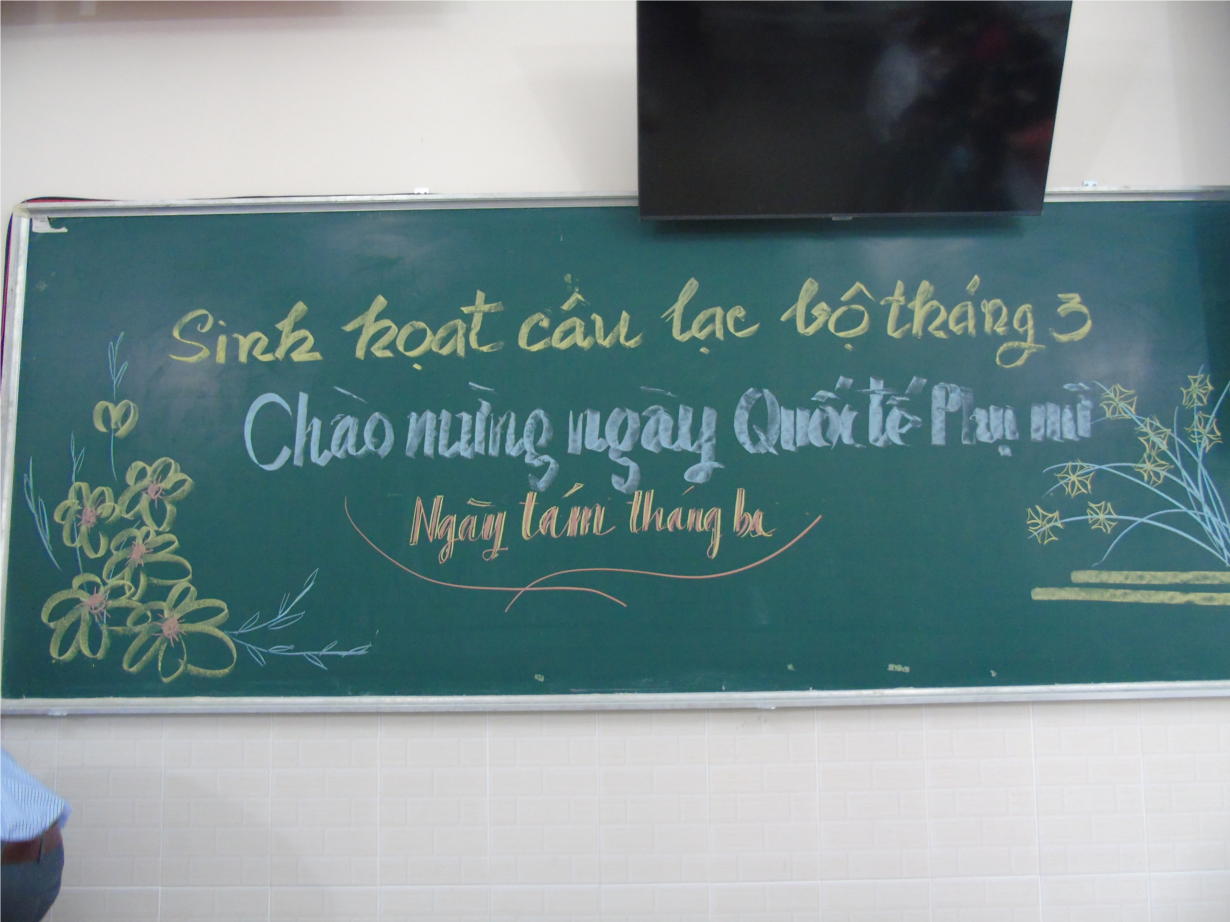 Sinh hoạt câu lạc bộ tháng 3
Chào mừng ngày Quốc tế Phụ nữ
Ngày tám tháng ba